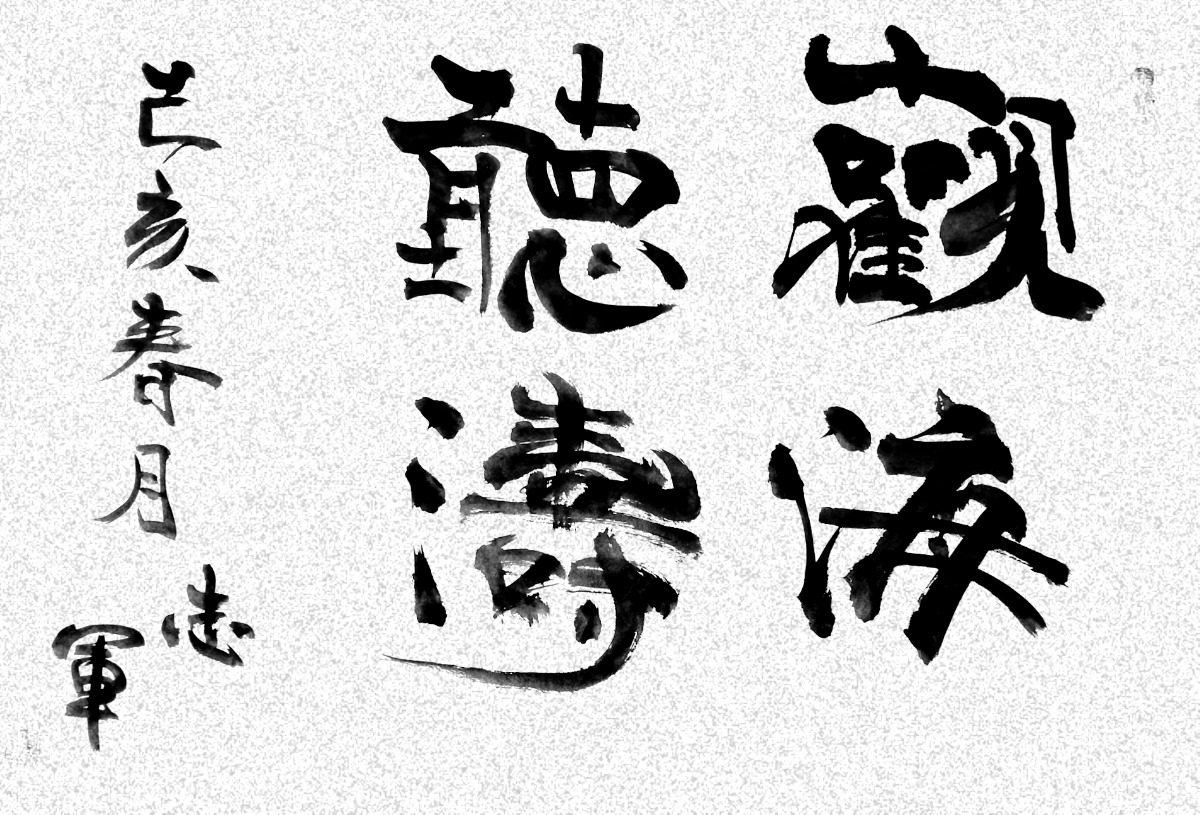 觀海
聽濤
己亥春月
志軍